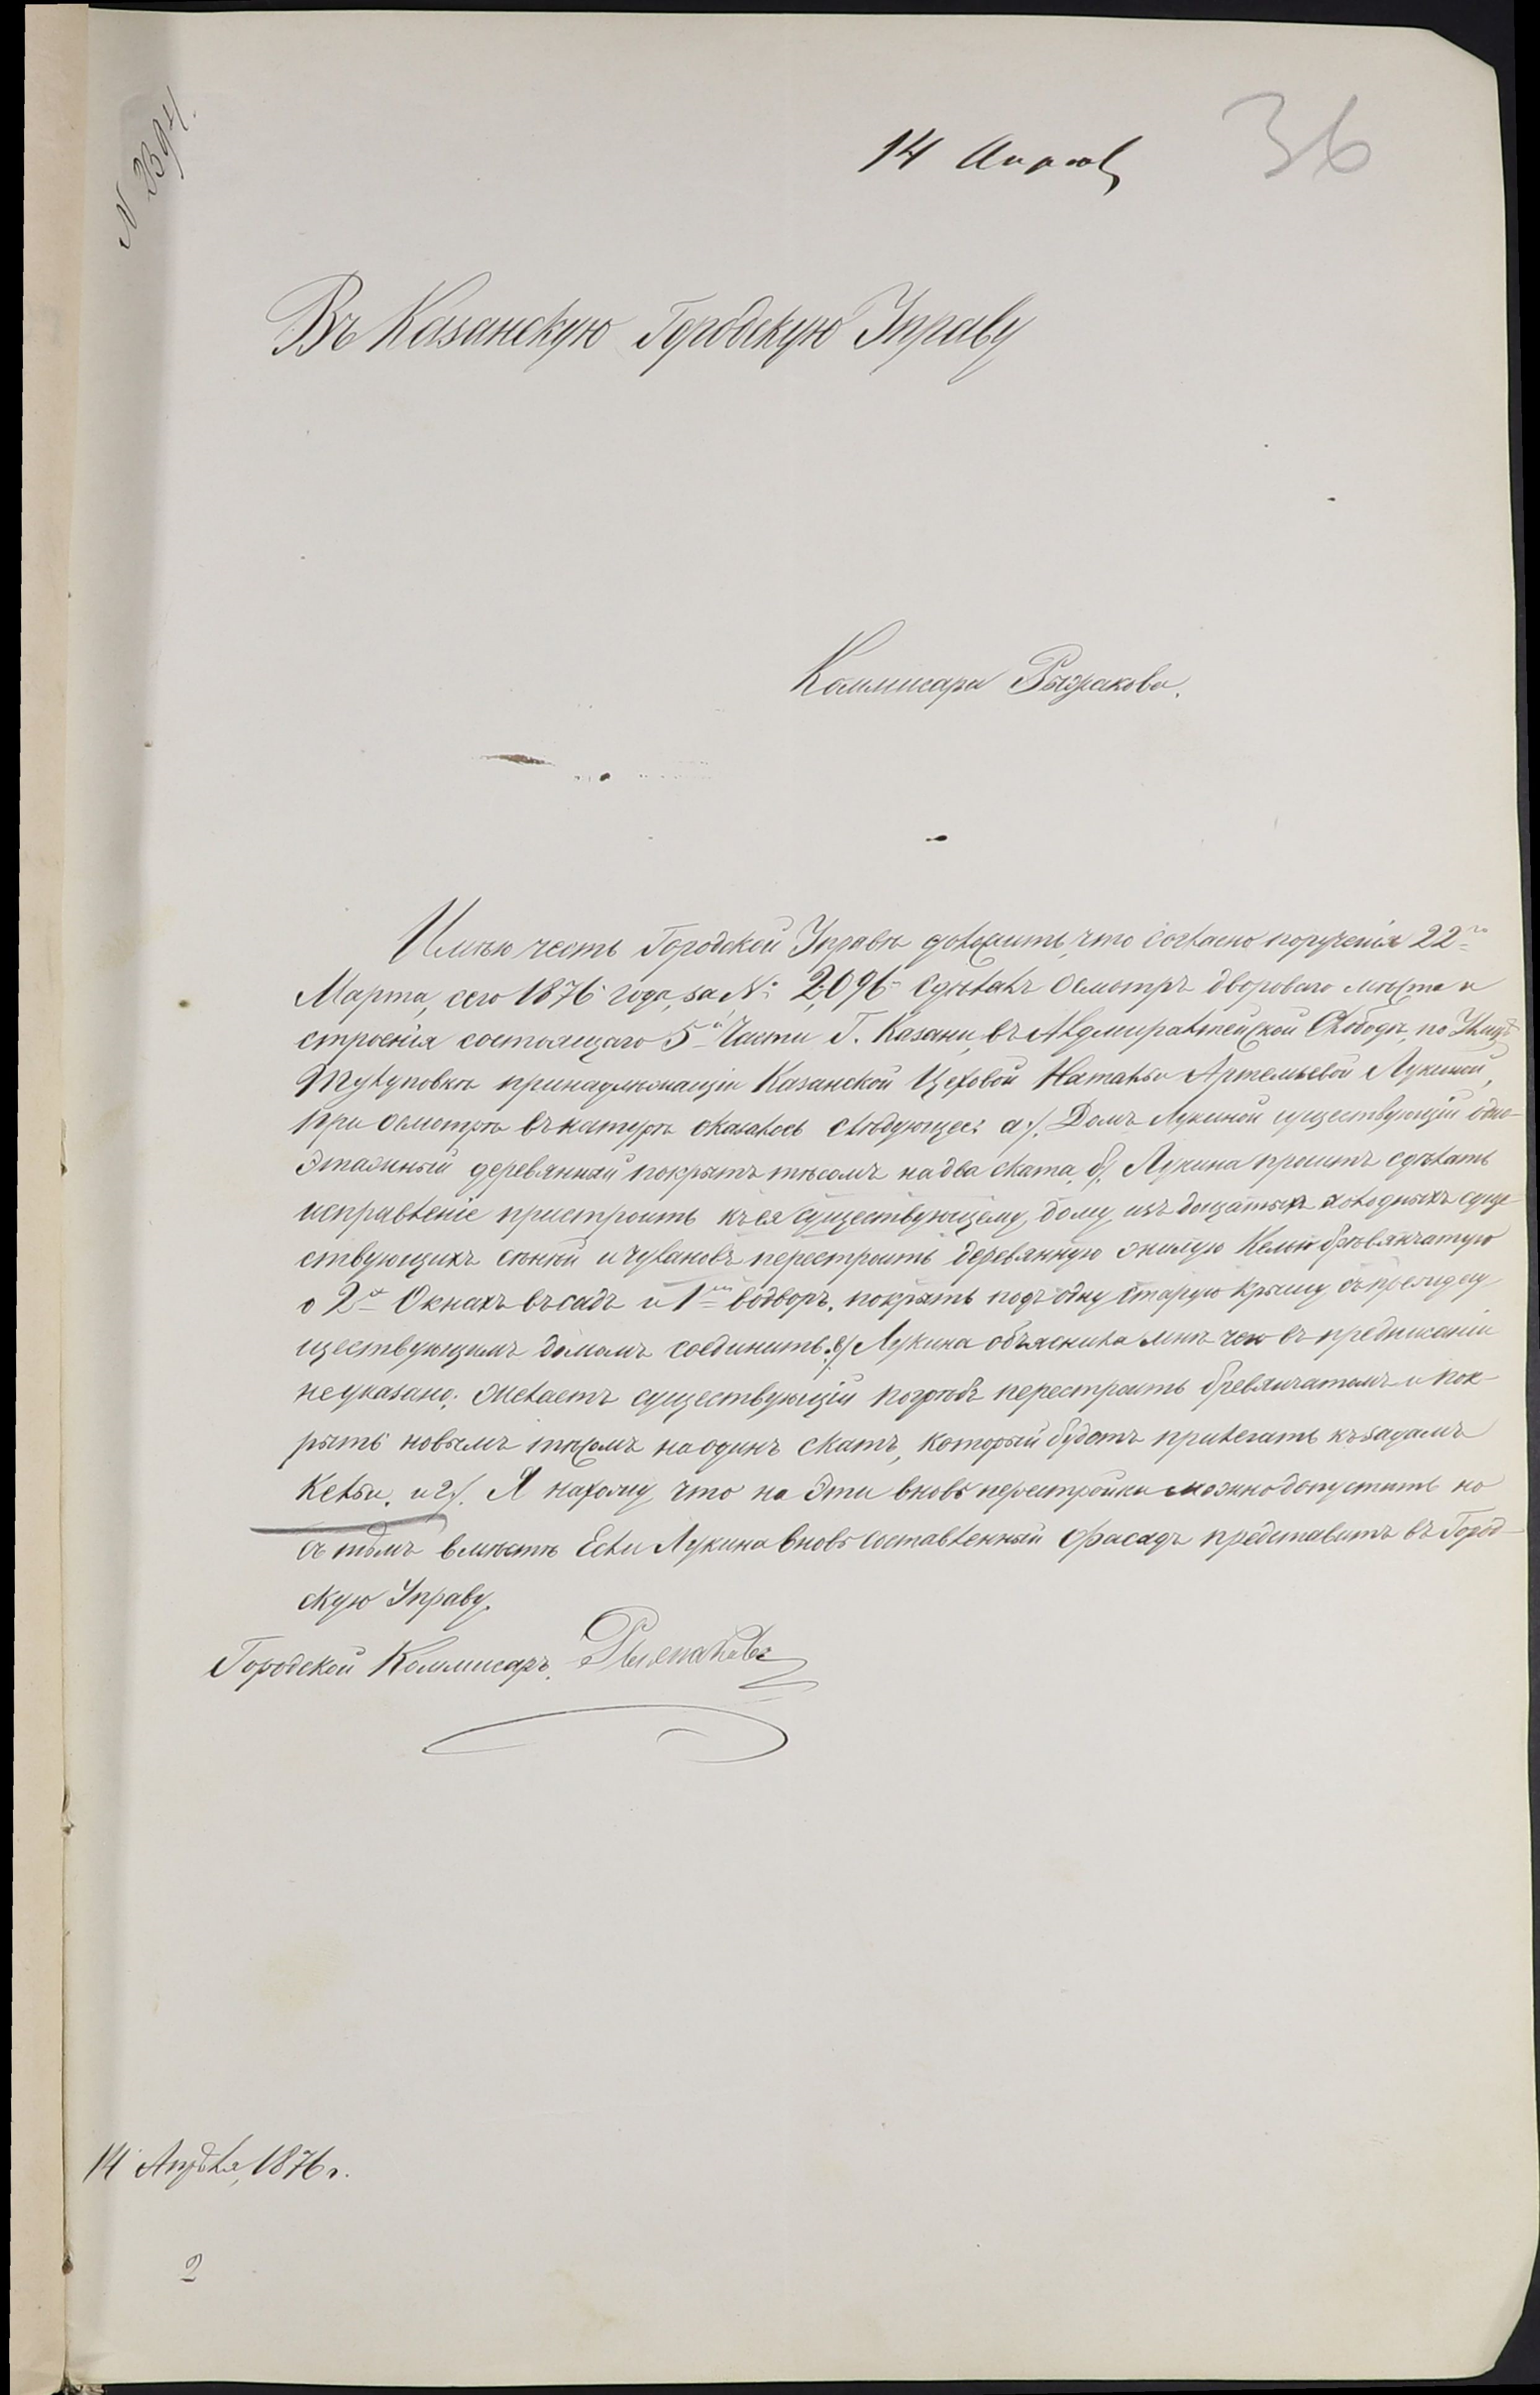 N 2394.
14 Апрѣл
36
Въ Казанскую Городскую Управу
Коммисара Рыжакова.
Имѣю честь Городской Управѣ доложить, что согласно порученія 22го
Марта, сего 1876 года, за №: 2,096 сдѣлалъ осмотръ дворового мѣста и
строенія состоящаго 5й Части Г. Казани, въ Адмиралтейской Слободѣ, по Улицѣ
принадлежащіи Казанской Цеховой Натальи Артемьевой Лукиной,
при осмотрѣ въ натурѣ оказалось слѣдующее: а). Домъ Лукиной существующій одно-
этажный деревянный покрытъ тесомъ на два ската, б). Лукина проситъ сдѣлать
исправленіе пристроить къ ея существующему дому, изъ дощатыхъ холодныхъ суще-
ствующихъ сѣней и чулановъ перестроить деревянную жилую Келью бревянчатую
о 2х Окнахъ въ садъ и 1мъ во дворъ, покрыть подъ одну старую крышу съ прежде су
ществующимъ домомъ соединить; в) Лукина объяснила мнѣ чего въ предписаніи
не указано: желаетъ существующій погребъ перестроить бревянчатымъ и пок-
рыть новымъ тесомъ на одинъ скатъ, который будетъ прилегать къ задамъ
Кельи. и г). Я нахожу что на эти вновь перестройки можно допустить но
съ тѣмъ вмѣстѣ Если Лукина вновь составленный фасадъ представитъ въ Город-
скую Управу.
Городской Коммисаръ. Рыжаковъ
14 Апрѣля, 1876 г.
2